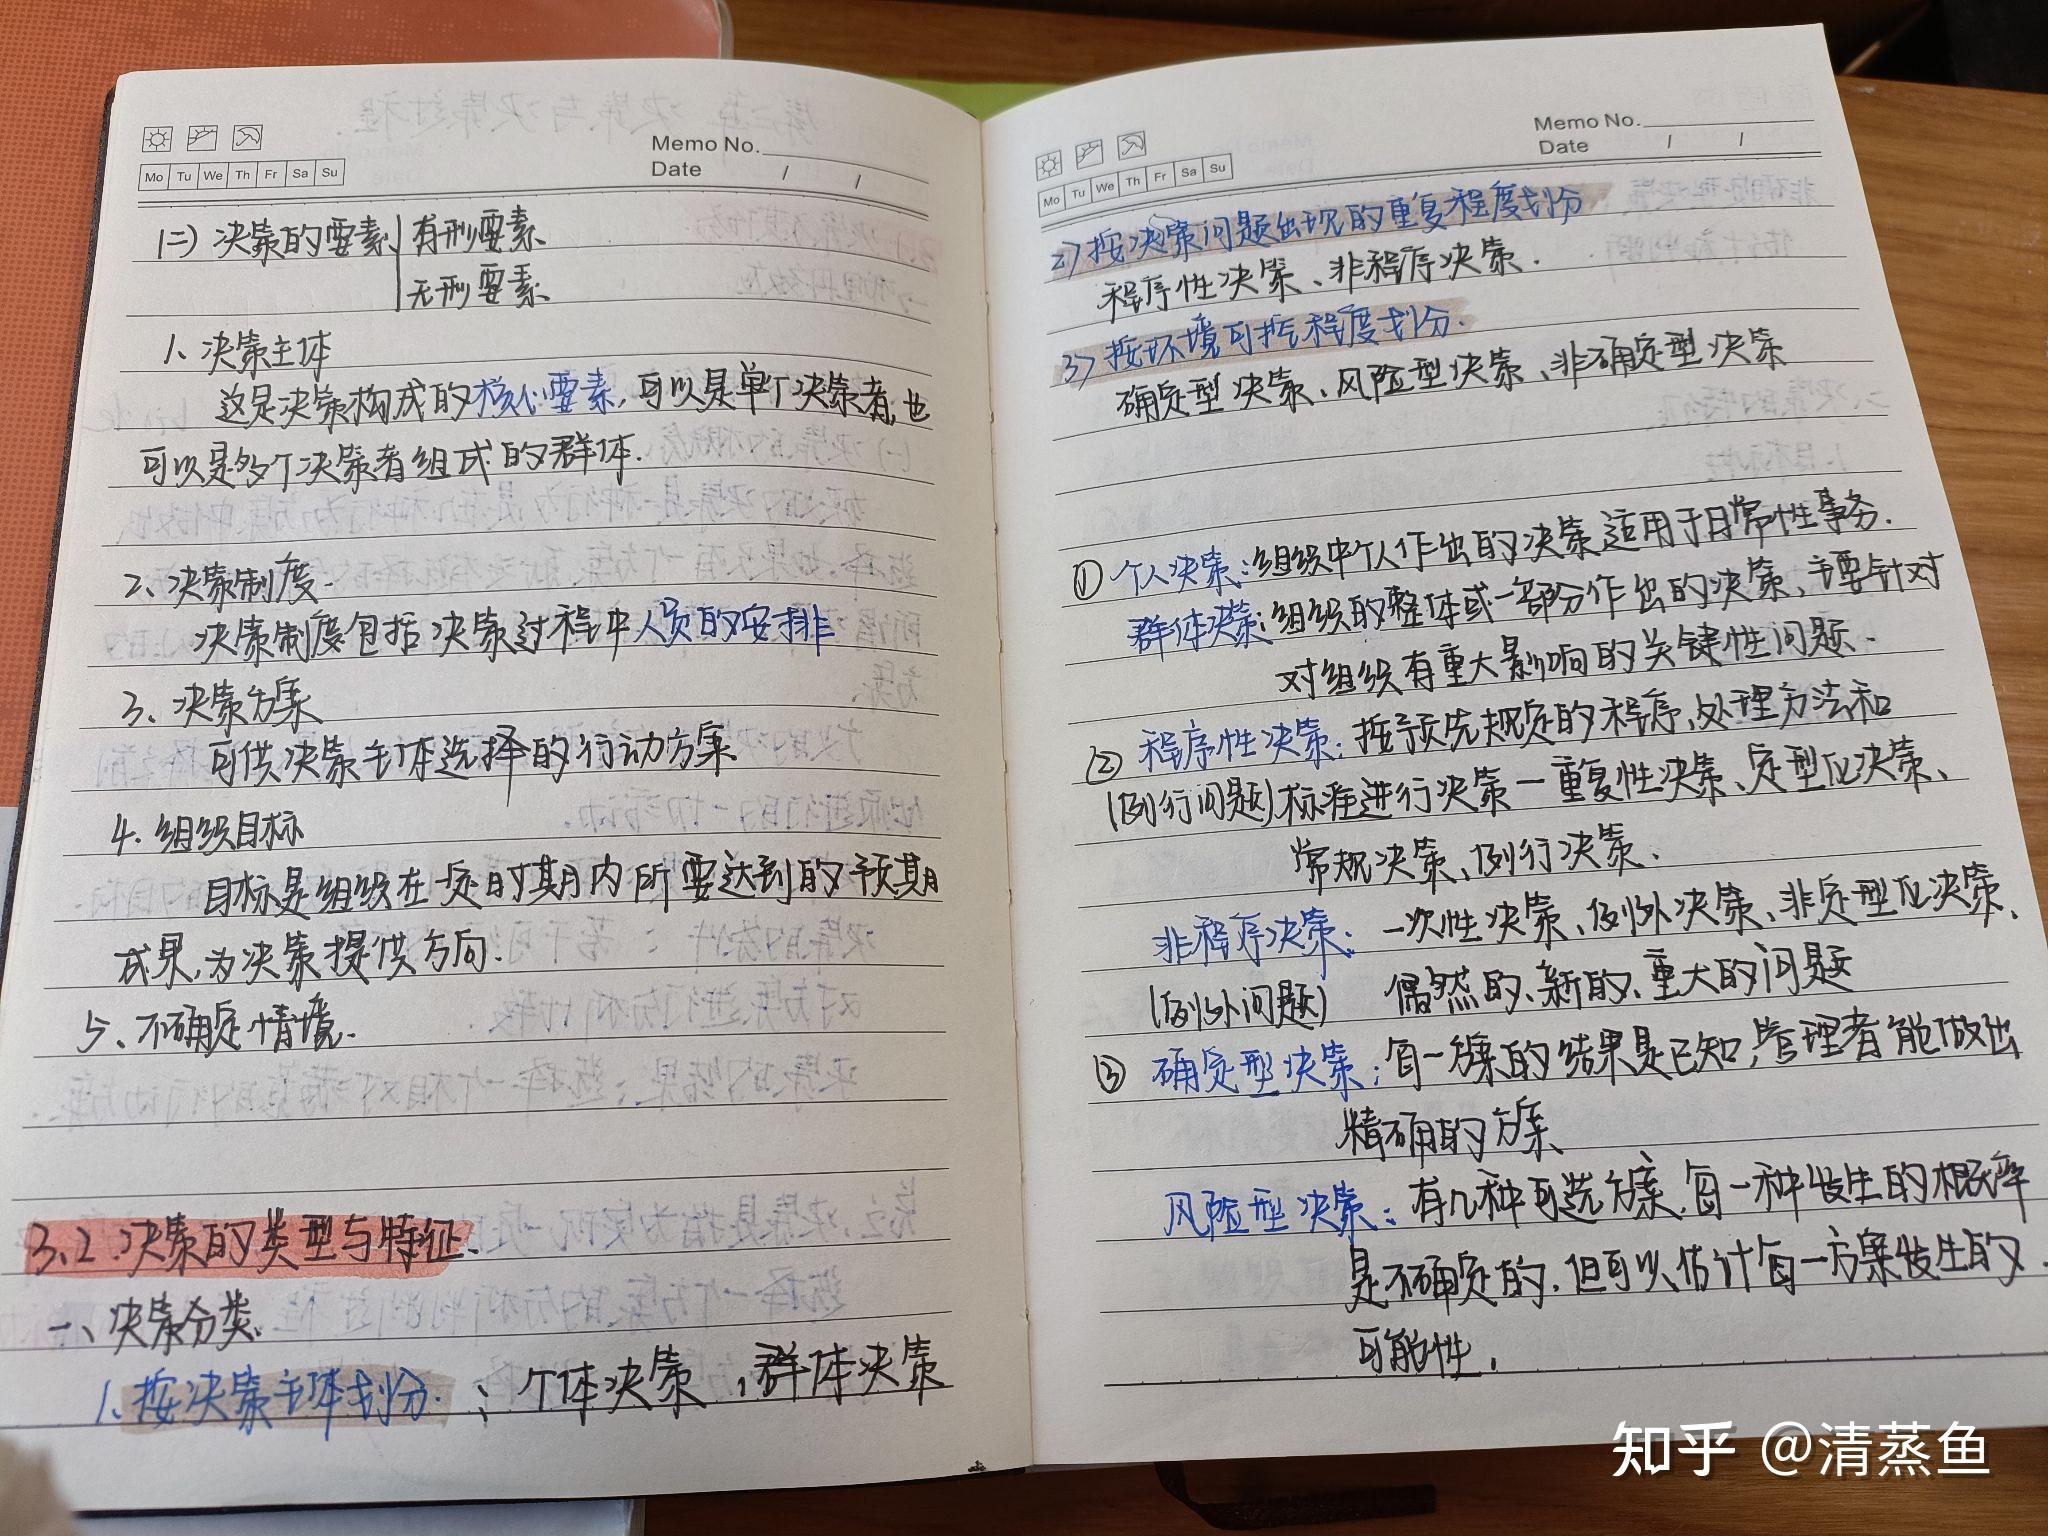 Memo No.
Date / /
Mo Tu We Th Fr Sa Su
(二) 决策的要素 有形要素
无形要素
1、决策主体
这是决策构成的核心要素,可以是单个决策者,也
可以是多个决策者组成的群体.
2、决策制度.
决策制度包括决策过程中人员的安排
3、决策方案
可供决策主体选择的行动方案
4.组织目标
目标是组织在一定的时期内所要达到的预期
成果,为决策提供方向.
5、不确定情境.
3.2.决策的类型与特征.
一、决策分类.
1.按决策主体划分.:个体决策,群体决策
Memo No.
Date / /
Mo Tu We Th Fr Sa Su
2)按决策问题出现的重复程度划分
程序性决策、非程序决策.
3)按环境可控程度划分.
确定型决策、风险型决策、非确定型决策
① 个人决策:组织中个人作出的决策适用于日常性事务.
群体决策:组织的整体或一部分作出的决策,主要针对
对组织有重大影响的关键性问题.
② 程序性决策:按预先规定的程序、处理方法和
(例行问题)标准进行决策—重复性决策、定型化决策、
常规决策、例行决策.
非程序决策:一次性决策、例外决策、非定型化决策、
(例外问题) 偶然的、新的、重大的问题
③ 确定型决策:每一方案的结果是已知,管理者能做出
精确的方案
风险型决策:有几种可选方案,每一种发生的概率
是不确定的,但可以估计每一方案发生的
可能性.
知乎 @清蒸鱼